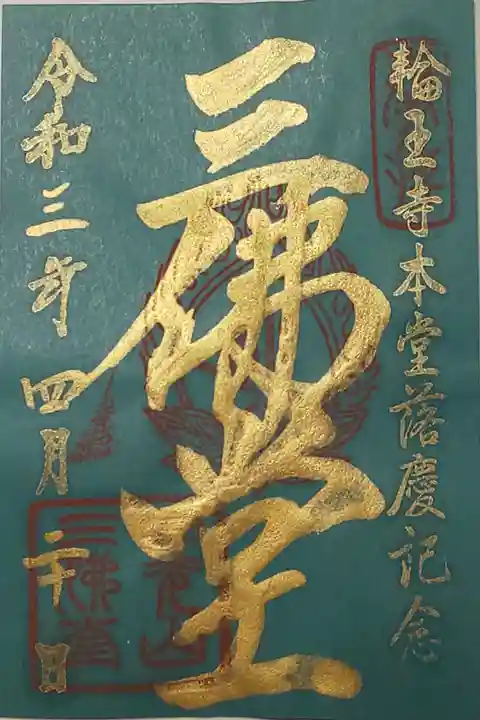 輪王寺本堂落慶記念
三佛堂
令和三年四月二十日
三佛堂